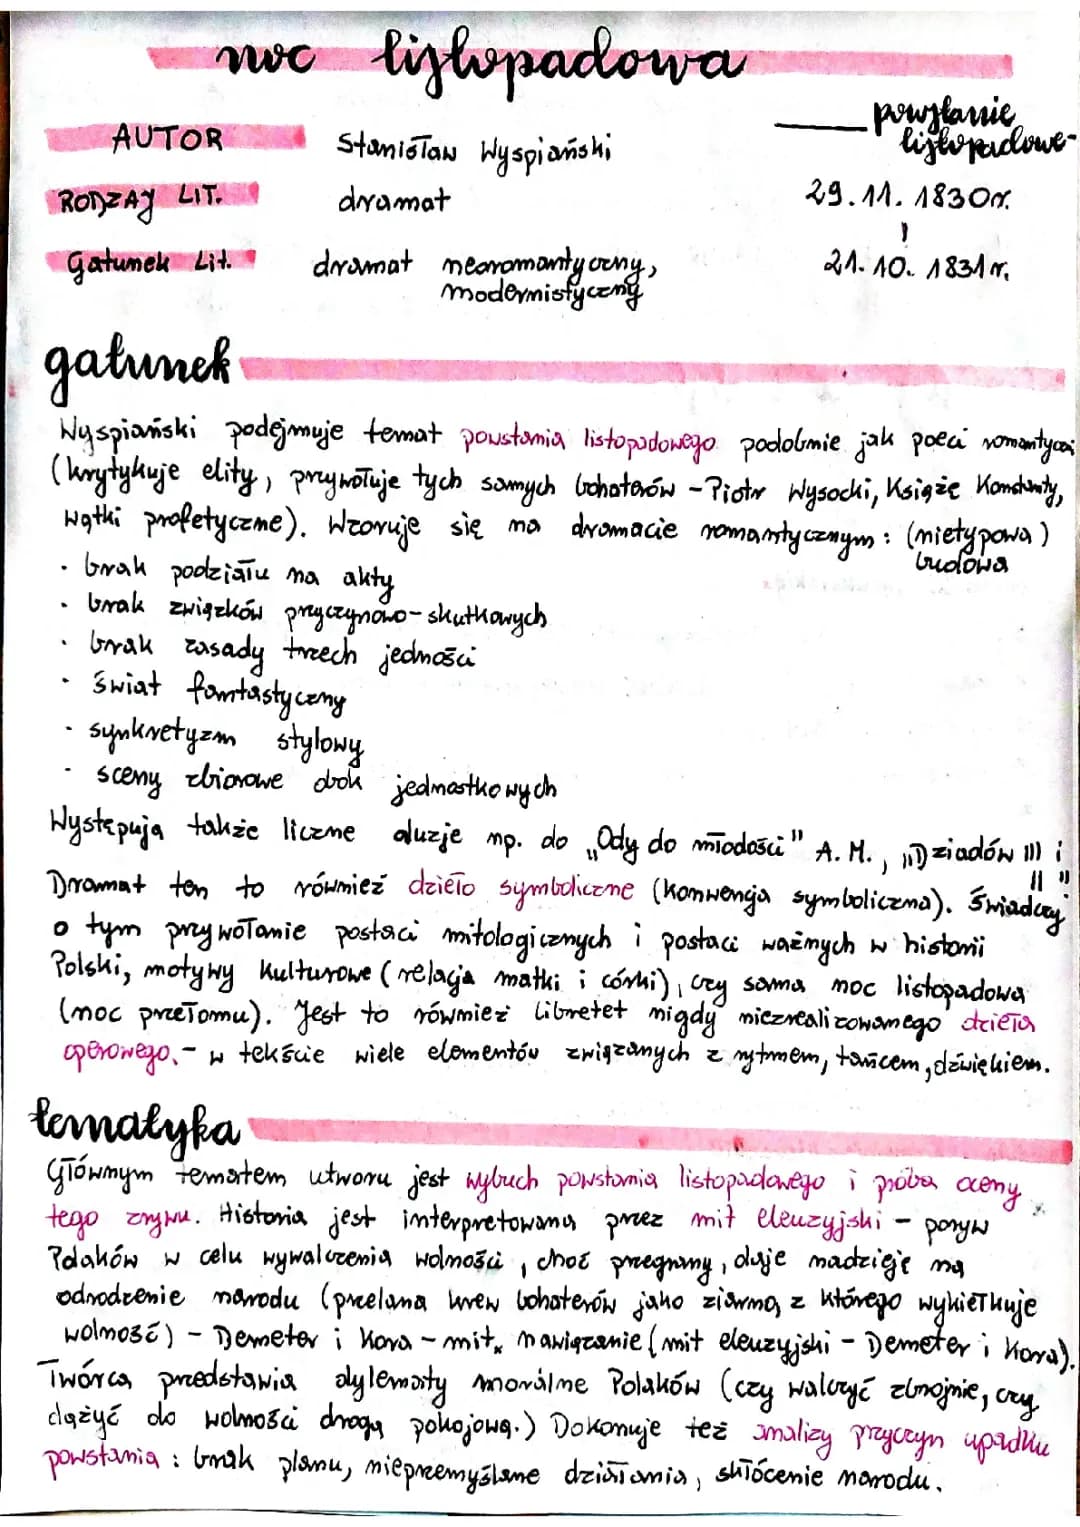 noc listopadowa
AUTOR Stanisław Wyspiański
powstanie
listopadowe
RODZAJ LIT. dramat
29.11.1830r.
Gatunek Lit. dramat neoromantyczny,
modernistyczny
21.10.1831r.
gatunek
Wyspiański podejmuje temat powstania listopadowego podobnie jak poeci romantyczni
(krytykuje elity, przywołuje tych samych bohaterów - Piotr Wysocki, Książę Konstanty,
wątki profetyczne). Wzoruje się na dramacie romantycznym: (nietypowa)
budowa
• brak podziału na akty
• brak związków przyczynowo-skutkowych
• brak zasady trzech jedności
• świat fantastyczny
• synkretyzm stylowy
• sceny zbiorowe obok jednostkowych
Występują także liczne aluzje np. do „Ody do młodości" A.M., „Dziadów III i
II"
Dramat ten to również dzieło symboliczne (konwencja symboliczna). Świadczy
o tym przywołanie postaci mitologicznych i postaci ważnych w historii
Polski, motywy kulturowe (relacja matki i córki), czy sama noc listopadowa
(noc przełomu). Jest to również libretet nigdy niezrealizowanego dzieła
operowego. - w tekście wiele elementów związanych z rytmem, tańcem, dźwiękiem.
tematyka
Głównym tematem utworu jest wybuch powstania listopadowego i próba oceny
tego zrywu. Historia jest interpretowana przez mit eleuzyjski - poryw
Polaków w celu wywalczenia wolności, choć przegrany, daje nadzieję na
odrodzenie narodu (przelana krew bohaterów jako ziarno, z którego wykiełkuje
wolność) - Demeter i Kora - mit, nawiązanie (mit eleuzyjski - Demeter i Kora).
Twórca przedstawia dylematy moralne Polaków (czy walczyć zbrojnie, czy
dążyć do wolności drogą pokojową.) Dokonuje też analizy przyczyn upadku
powstania: brak planu, nieprzemyślane działania, skłócenie narodu.